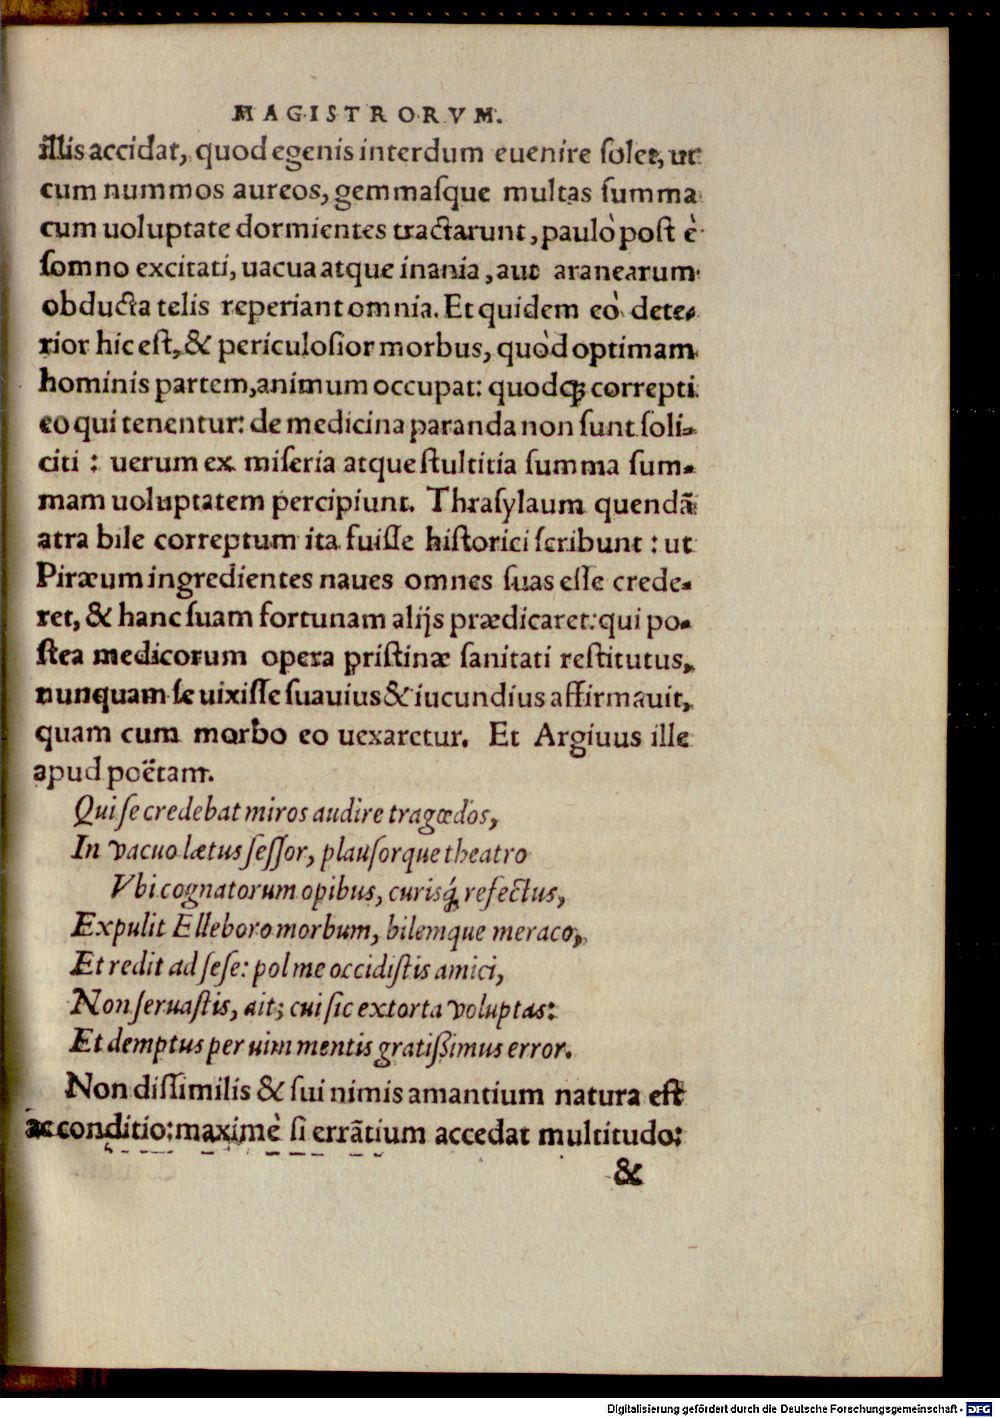 MAGISTRORVM.
illis accidat, quod egenis interdum euenire solet, ut
cum nummos aureos, gemmasque multas summa
cum uoluptate dormientes tractarunt, paulò post è
somno excitati, uacua atque inania, aut aranearum
obducta telis reperiant omnia. Et quidem eò dete-
rior hic est, & periculosior morbus, quòd optimam
hominis partem, animum occupat: quodq́ correpti
eo qui tenentur: de medicina paranda non sunt soli-
citi : uerum ex miseria atque stultitia summa sum-
mam uoluptatem percipiunt. Thrasylaum quendã
atra bile correptum ita fuisse historici scribunt : ut
Piræum ingredientes naues omnes suas esse crede-
ret, & hanc suam fortunam alijs prædicaret: qui po-
stea medicorum opera pristinæ sanitati restitutus,
nunquam se uixisse suauius & iucundius affirmauit,
quam cum morbo eo uexaretur. Et Argiuus ille
apud poëtam.
Qui se credebat miros audire tragœdos,
In vacuo lætus sessor, plausorque theatro
Vbi cognatorum opibus, curisq́, refectus,
Expulit Elleboro morbum, bilemque meraco,
Et redit ad sese: pol me occidistis amici,
Non seruastis, ait; cui sic extorta voluptas:
Et demptus per uim mentis gratißimus error.
Non dissimilis & sui nimis amantium natura est
ac conditio: maximè si errãtium accedat multitudo:
&
Digitalisierung gefördert durch die Deutsche Forschungsgemeinschaft - DFG